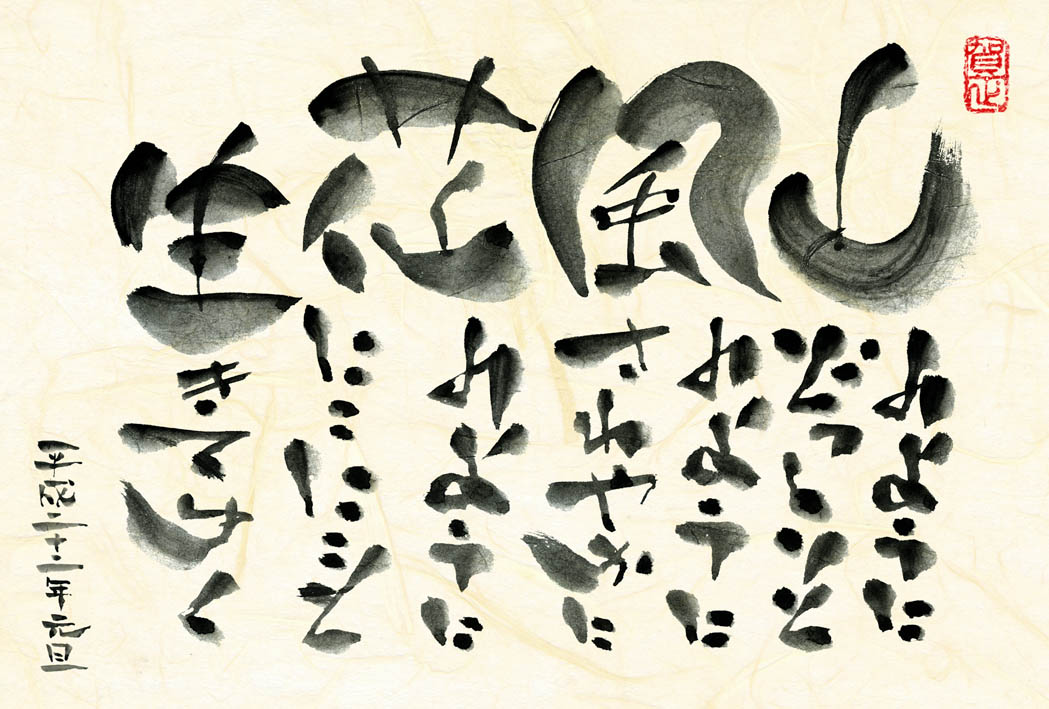 賀正
山のように
どっしりと
風のように
さわやかに
花のように
にこにこと
生きてゆく
平成二十二年元旦